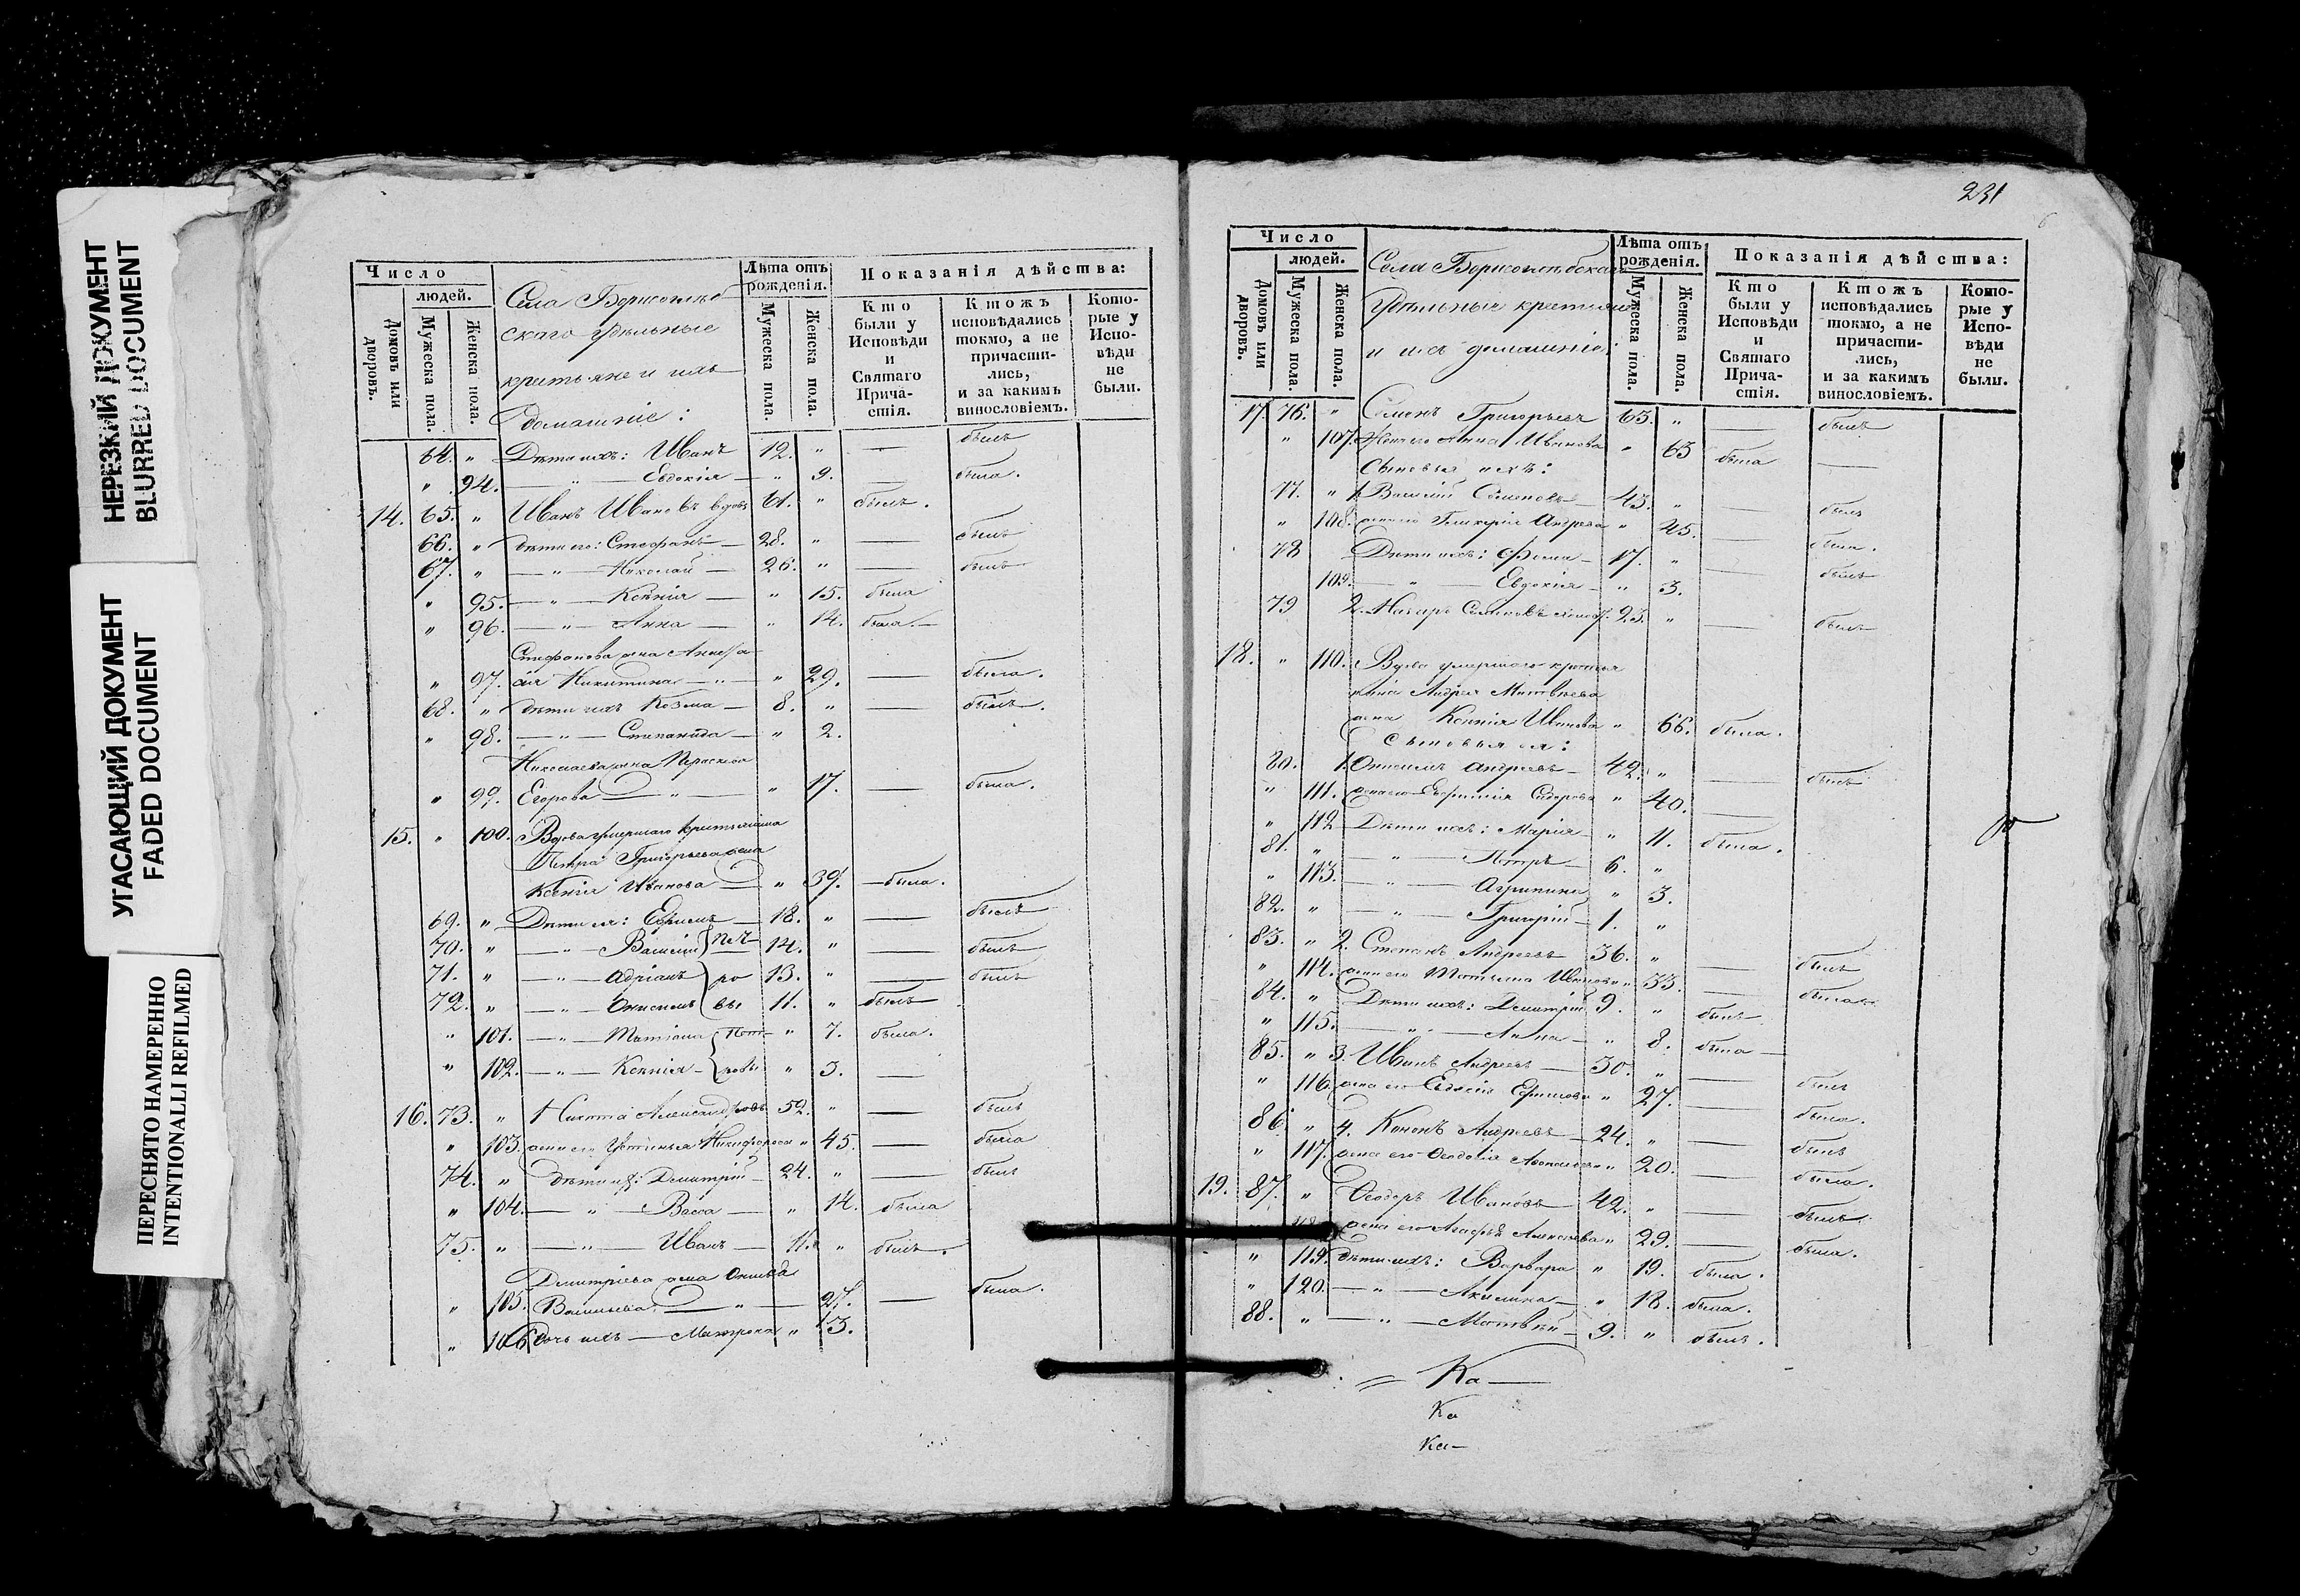 НЕРЕЗКИЙ ДОКУМЕНТ
BLURRED DOCUMENT
УГАСАЮЩИЙ ДОКУМЕНТ
FADED DOCUMENT
ПЕРЕСНЯТО НАМЕРЕННО
INTENTIONALLI REFILMED
Число
людей.
Домовъ или дворовъ.
Мужеска пола.
Женска пола.
Села Борисоглѣб
скаго удѣльные
крестьяне и ихъ
домашніе:
Лѣта отъ рожденія.
Мужеска пола.
Женска пола.
Показанія дѣйства:
Кто были у Исповѣди и Святаго Причастія.
Ктожъ исповѣдались токмо, а не причастились, и за какимъ винословіемъ.
Которые у Исповѣди не были.
64. " Дѣти ихъ: Иванъ 12. " — былъ
" 94. — " — Евдокія — " 9. — была.
14. 65. " Иванъ Ивановъ вдовъ 61. " былъ.
66. " дѣти его: Стефанъ — 28. " — былъ
67. " — " — Николай — 26. " — былъ
" 95. — " — Ксенія — " 15. была
" 96. — " — Анна — " 14. была. —
Стефанова жена
" 97. Никитина — " — " 29. — была.
68. " дѣти ихъ Козма — 8. " — былъ.
" 98. — " — Степанида — " 2.
Николаева жена Параскева
" 99. Егорова — " — " 17. — была.
15. " 100. Вдова умершаго крестьянина
Петра Григорьева жена
Ксенія Иванова — " 39. — была.
69. " Дѣти ея: Ефимъ — 18. " — былъ
70. " — " — Василій Пет 14. " — былъ
71. " — " — Адріанъ ро 13. " — былъ
72. " — " — Онисимъ вы 11. " былъ
" 101. — " — Татіана Пет " 7. была.
" 102. — " — Ксенія ровы " 3. —
16. 73. " 1 Александровъ 52. " — былъ
" 103. жена его Устинья Никифорова " 45. — была
74. " дѣти ихъ: Димитрій — 24. " — былъ
" 104. — " — Васса — " 14. была
75. " — " — Иванъ — 11. " былъ.
Димитріева жена
" 105. Васильева — " — 27. — была.
" 106. дочь ихъ — Матрона " 3.
231
Число
людей.
Домовъ или дворовъ.
Мужеска пола.
Женска пола.
Села Борисоглѣбскаго
Удѣльные крестьяне
и ихъ домашніе:
Лѣта отъ рожденія.
Мужеска пола.
Женска пола.
Показанія дѣйства:
Кто были у Исповѣди и Святаго Причастія.
Ктожъ исповѣдались токмо, а не причастились, и за какимъ винословіемъ.
Которые у Исповѣди не были.
17. 76. " Семенъ Григорьевъ 65. " — былъ
" 107. Жена его Анна Иванова " 63 была —
Сыновья ихъ:
77. " 1. Василій Семеновъ — 43. " — былъ
" 108. жена его Гликерія Андреева " 45. — была.
78 Дѣти ихъ: Фома — 17. " — былъ
109. — " — Евдокія — " 3.
79 2. Назаръ Семеновъ 23. " — былъ
18. " 110. Вдова умершаго крестья
нина Андрея Матвѣева
жена Ксенія Иванова " 66. была.
Сыновья ея:
80. 1. Онисимъ Андреевъ — 42. " — былъ
" 111. жена его Евфимія Сидорова " 40. —
" 112 Дѣти ихъ: Марія — " 11. была.
81. " — " — Петръ — 6. "
" 113. — " — Агрипина " 3.
82. " — " — Григорій — 1. "
83. " 2. Степанъ Андреевъ 36. " — былъ
" 114. жена его Татьяна Иванова " 33. — была
84. " Дѣти ихъ: Димитрій 9. " былъ
" 115. — " — Анна — " 8. была —
85. " 3. Иванъ Андреевъ — 30. " — былъ
" 116. жена его Евдокія Ефимова " 27. — была.
86 " 4. Кононъ Андреевъ — 24. " — былъ
" 117. жена его Ѳеодосія " 20. — была.
19. 87. " Ѳеодоръ Ивановъ 42. " — былъ
жена его Агафья Алексѣева " 29. — была.
" 119. дѣти ихъ: Варвара " 19. была.
" 120. — " — Акилина — " 18. была.
88. " — " — Матвѣй — 9. " былъ.
Ка —
Ка
Ка —